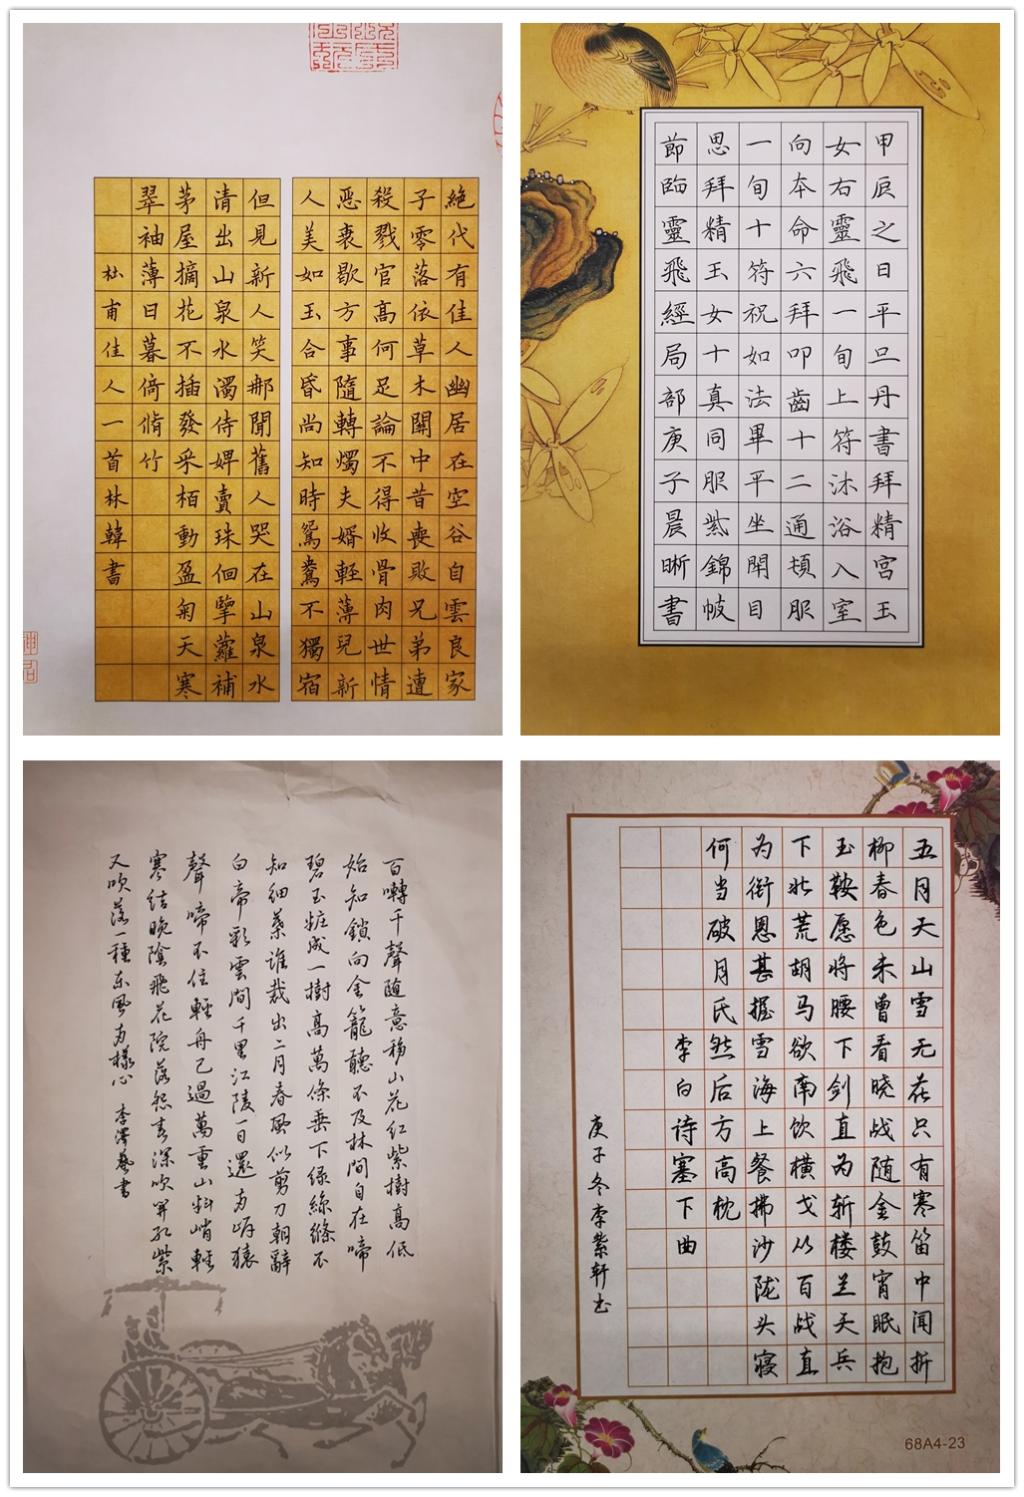 絶代有佳人幽居在空谷自雲良家
子零落依草木關中昔喪敗兄弟遭
殺戮官高何足論不得收骨肉世情
惡衰歇方事隨轉燭夫婿輕薄兒新
人美如玉合昏尚知時鴛鴦不獨宿
但見新人笑那聞舊人哭在山泉水
清出山泉水濁侍婢賣珠佪牽蘿補
茅屋摘花不插發采栢動盈匊天寒
翠袖薄日暮倚脩竹
杜甫佳人一首林韓書
甲辰之日平旦丹書拜精宮玉
女右靈飛一旬上符沐浴入室
向本命六拜叩齒十二通頓服
一旬十符祝如法畢平坐閉目
思拜精玉女十真同服紫錦帔
節臨靈飛經局部庚子晨晰書
百囀千聲随意移山花红紫樹高低
始知鎖向金籠聽不及林間自在啼
碧玉粧成一樹高萬條垂下绿絲縧不
知细葉谁裁出二月春風似剪刀朝辭
白帝彩雲間千里江陵一日還两岸猿
聲啼不住輕舟已過萬重山料峭輕
寒结晚陰飛花院落怨春深吹開红紫
又吹落一種东風两樣心 李澤藝書
五月天山雪无花只有寒笛中闻折
柳春色未曾看晓战随金鼓宵眠抱
玉鞍愿将腰下剑直为斩楼兰天兵
下北荒胡马欲南饮横戈从百战直
为衔恩甚握雪海上餐拂沙陇头寝
何当破月氏然后方高枕
李白诗塞下曲
庚子冬李紫轩书
68A4-23